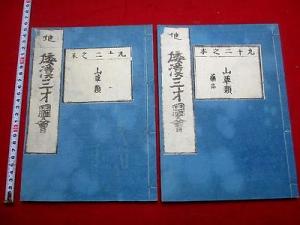 九十二之本
山草類
倭漢三才圖會
九十二之末
山草類
倭漢三才圖會